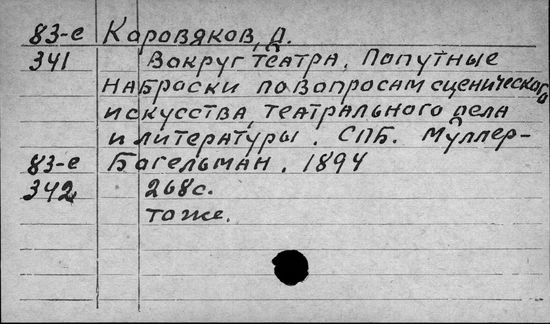 83-е Коровяков, Д.
341 Вокруг театра. Попутные
наброски по вопросам сценического
искусства, театрального дела
и литературы. СПБ. Муллер-
83-е Богельман. 1894
342 268с.
тоже.